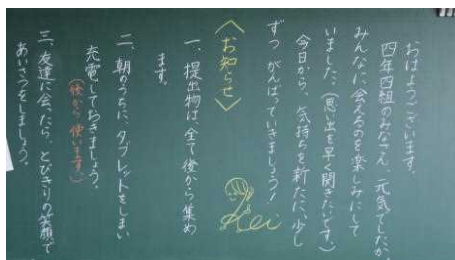 おはようございます。
四年四組のみなさん 元気でしたか。
みんなに会えるのを楽しみにして
いました。(思い出を早く聞きたいです。)
今日から、気持ちを新たに、少し
ずつ がんばっていきましょう!
〈お知らせ〉
一、提出物は、全て後から集め
ます。
二、朝のうちに、タブレットをしまい
充電しておきましょう。
(後から使います。)
三、友達に会ったら、とびきりの笑顔で
あいさつをしましょう。
Kei